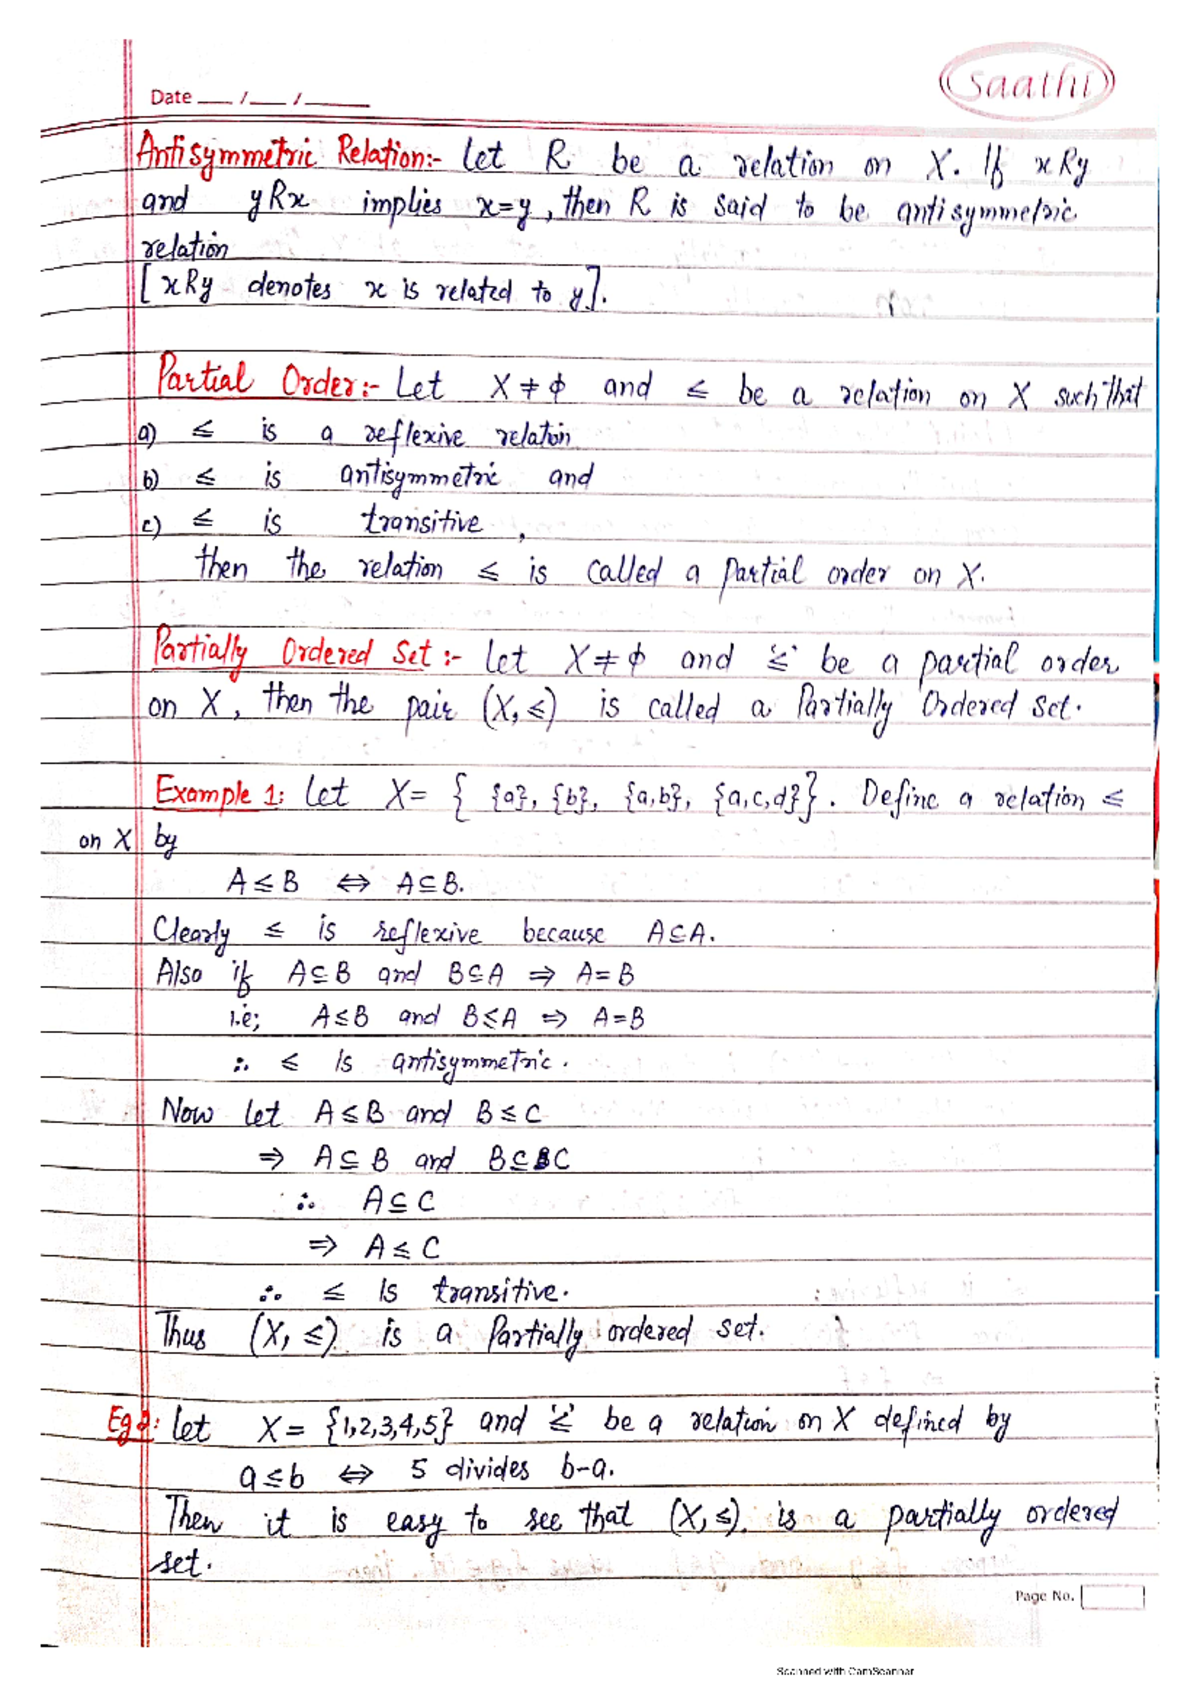 Date __ / __ / ____
saathi
Antisymmetric Relation:- Let R be a relation on X. If xRy
and yRx implies x=y, then R is said to be antisymmetric
relation
[xRy denotes x is related to y].
Partial Order:- Let X ≠ ϕ and ≤ be a relation on X such that
a) ≤ is a reflexive relation
b) ≤ is antisymmetric and
c) ≤ is transitive,
then the relation ≤ is called a partial order on X.
Partially Ordered Set :- Let X ≠ ϕ and '≤' be a partial order
on X, then the pair (X, ≤) is called a Partially Ordered Set.
Example 1: Let X = { {a}, {b}, {a,b}, {a,c,d}}. Define a relation ≤
on X by
A ≤ B ⇔ A ⊆ B.
Clearly ≤ is reflexive because A ⊆ A.
Also if A ⊆ B and B ⊆ A ⇒ A = B
i.e; A ≤ B and B ≤ A ⇒ A = B
∴ ≤ is antisymmetric.
Now let A ≤ B and B ≤ C
⇒ A ⊆ B and B ⊆ C
∴ A ⊆ C
⇒ A ≤ C
∴ ≤ is transitive.
Thus (X, ≤) is a Partially ordered set.
Eg 2: Let X = {1,2,3,4,5} and '≤' be a relation on X defined by
a ≤ b ⇔ 5 divides b-a.
Then it is easy to see that (X, ≤) is a partially ordered
set.
Page No.
Scanned with CamScanner